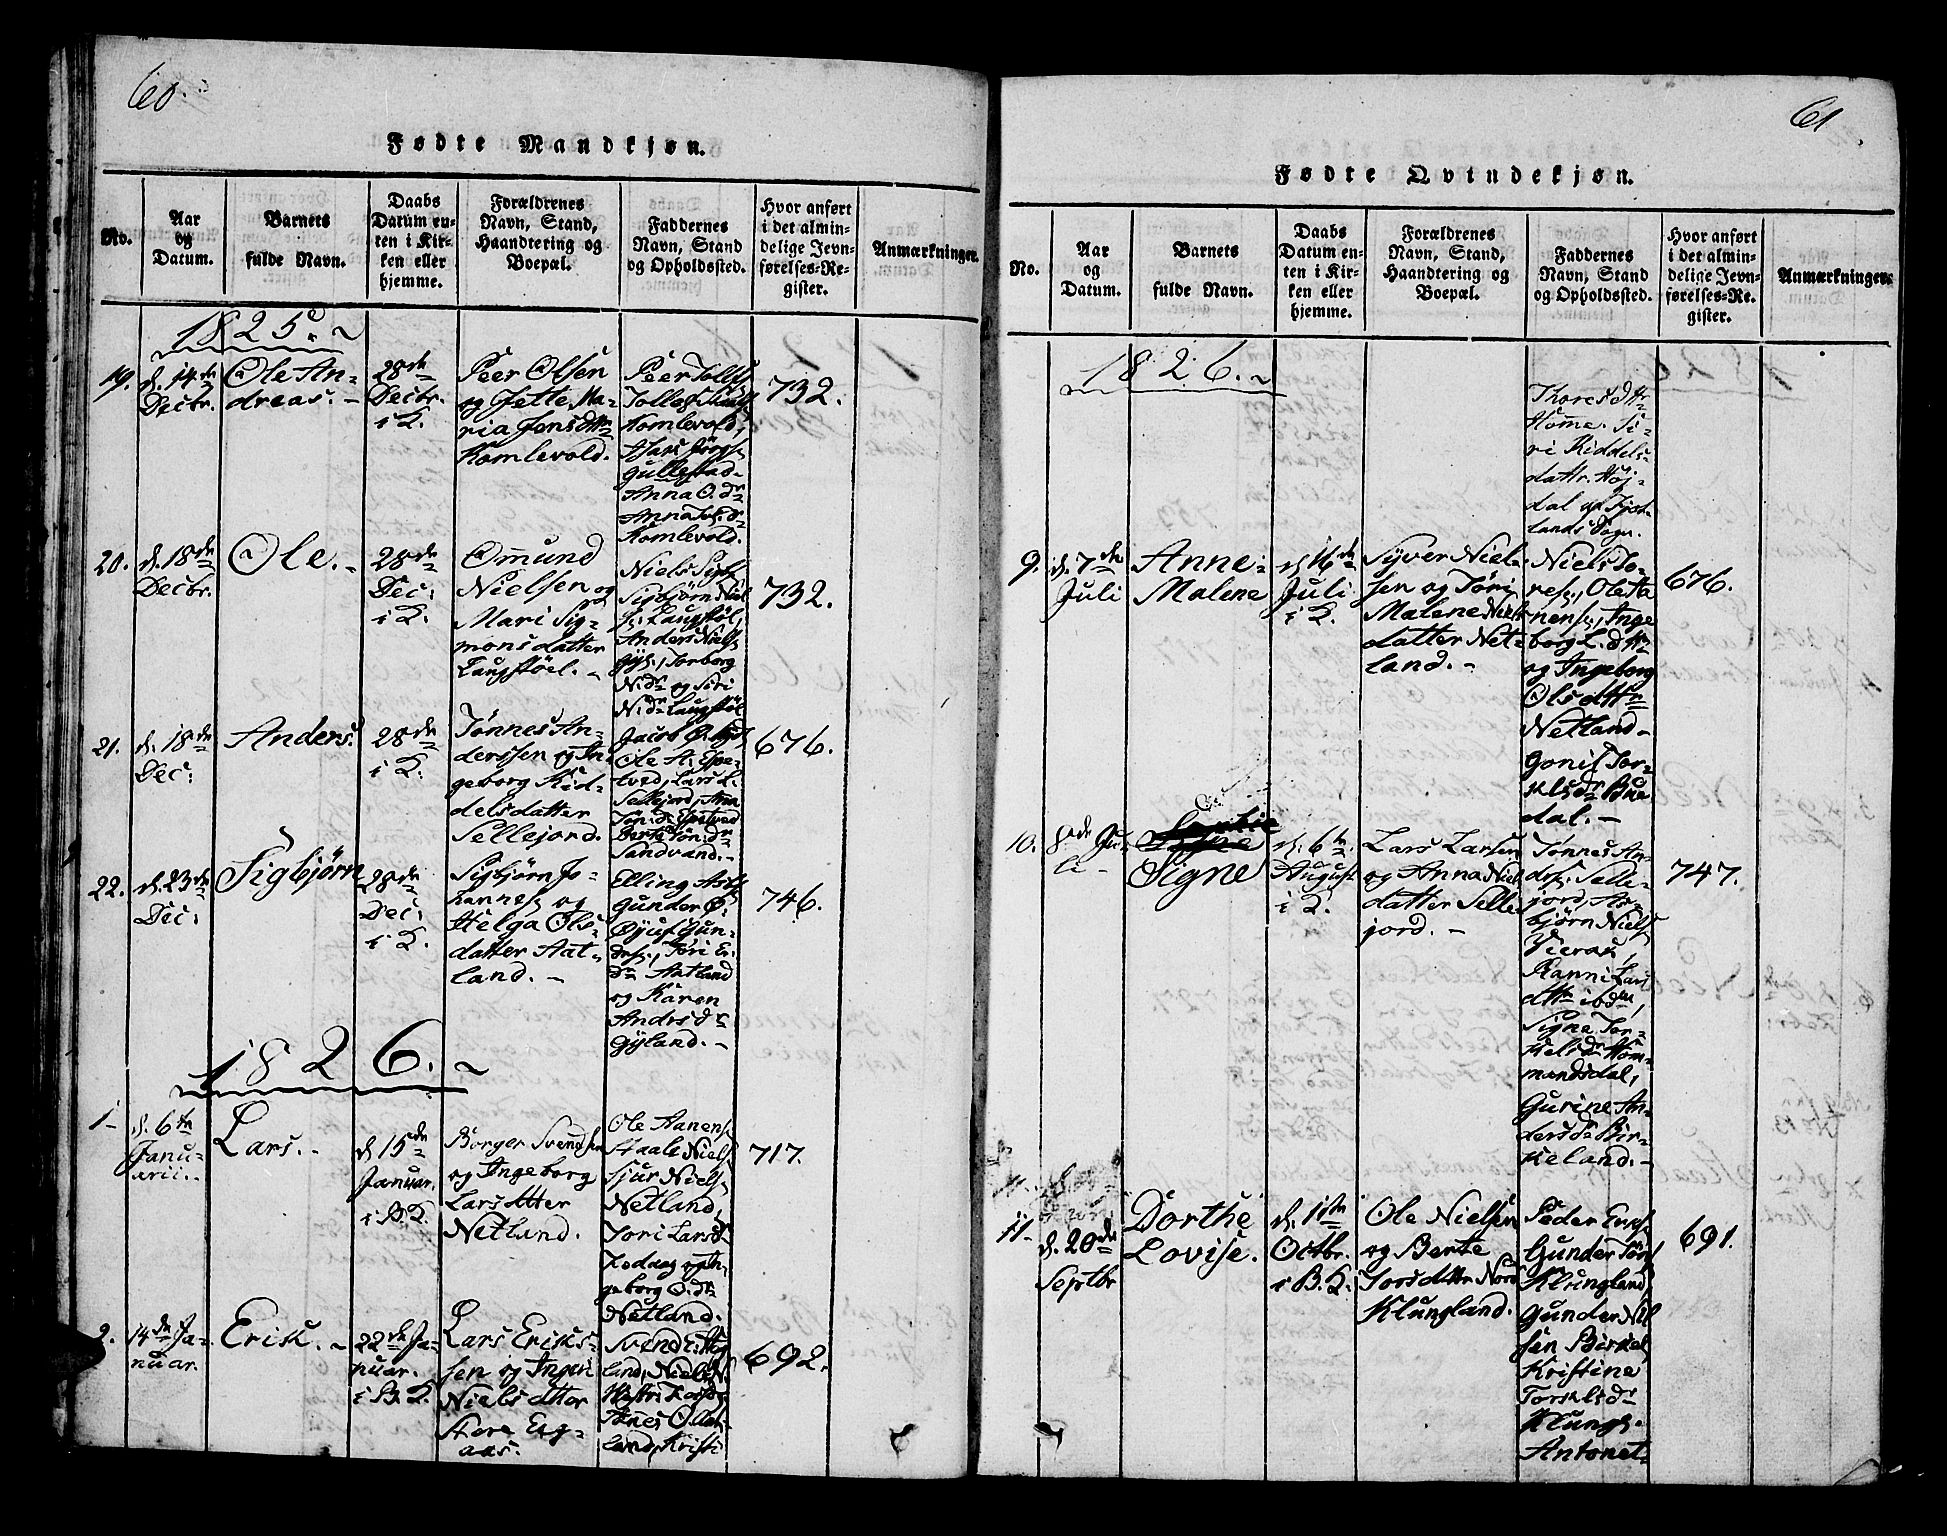 60.
Fødte Mandkjøn.
No.
Aar
og
Datum.
Barnets
fulde Navn.
Daabs
Datum en-
ten i Kir-
ken eller
hjemme.
Forældrenes
Navn, Stand,
Haandtering og
Boepæl.
Faddernes
Navn, Stand
og Opholdssted.
Hvor anført
i det almin-
delige Jevn-
førelses-Re-
gister.
Anmærkninger.
1825.
19.
d. 14de
Decbr.
Ole An-
dreas.
28de
Decbr.
i K.
Peer Olsen
og Jette Ma-
ria Jensdttr
Komlevold.
Peer
Komlevold,
Gullestad
Anna O.dr
Anna
Komlevold.
732.
20.
d. 18de
Decbr.
Ole.
28de
Dec:
i K.
Omund
Nielsen og
Mari Sig-
monsdatter
Laugstøel.
Niels
Sigbjørn
Laugstøl,
Anders Niels
Torborg
N.dr og Siri
N.dr Laugstøl
732.
21.
d. 18de
Dec:
Anders.
28de
i K.
Tønnes An-
derssen og In-
geborg Rid-
delsdatter
Sellejord.
Jacob
Ole A. Espe-
tved, Lars L.
Sellejord, Anna
Tøn.dr Espetved
Berte Tøn.dr
Sandvand.
676.
22.
d. 23de
Dec:
Sigbjørn
28de
Dec:
i K.
Sigbjørn Jo-
hannes og
Helga Ols-
datter Aat-
land.
Elling
Gunder Ø.
Øyuf Gun-
ders., Tøri E.
dr Aatland
og Karen
Andrsdr
Gyland.
746.
1826.
1
d. 6te
Janu-
arii.
Lars.
d 15de
Januar.
i B.K.
Borger Svendsen
og Ingeborg
Larsdtter
Netland.
Ole Aanens.
Staale Niels
Sjur Niels
Netland,
Tori Larsd
og In-
geborg O.dr
Netland.
717.
2.
14de Ja-
nuar.
Erik.
22de Ja-
nuar.
i B.K.
Lars Erik-
sen og Inger
Nielsdtter
Store Eeg-
aas.
Svend
land, Niels
Tønes
land, Kristi
692.
61
Fødte Qvindekjøn.
No.
Aar
og
Datum.
Barnets
fulde Navn.
Daabs
Datum en-
ten i Kir-
ken eller
hjemme.
Forældrenes
Navn, Stand,
Haandtering og
Boepæl.
Faddernes
Navn, Stand
og Opholdssted.
Hvor anført
i det almin-
delige Jevn-
førelses-Re-
gister.
Anmærkninger.
1826.
Thoresdttr
Homme. Si-
ri Riddels-
dattr. Høj-
dal af Fjot-
lands Sogn.
9.
d. 7de
Juli
Anne
Malene
d 16de
Juli
i K.
Syver Niel-
sen og Tøri
Malene Niels
datter Net-
land.
Niels To-
res., Ole Aa
nens., Inge
borg L. dttr
og Ingeborg
Olsdttr
Netland
Gonil Tor-
kelsdr Bue
dal.
676.
10.
8de Ju-
li
Sophie
Signe
d. 6te
August
i K.
Lars Larsen
og Anna Niels
datter Selle
jord.
Tønnes An-
ders. Selle-
jord, As-
bjørn Niels
Vieraas,
Ranni Lars
dttr ibdm,
Signe Tor-
kelsdr Hom-
mandsdal,
Gurine An-
dersd Bir-
keland.
747.
11
d. 20de
Septbr
Dorthe
Lovise.
d. 1ste
Octbr.
i B.K.
Ole Nielsen
og Berte
Torsdattr Nord
Klungland.
Peder Eriks.
Gunder Tørs
Klungland
Gunder Niel
sen Birkel,
Kristine
Torkelsdr
Klungl.
Antonet-
691.